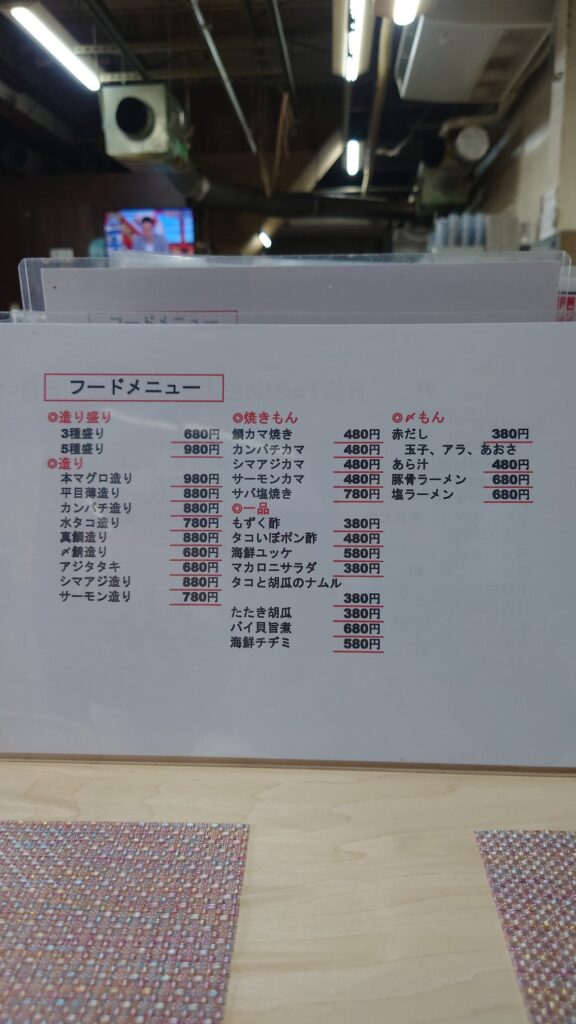 フードメニュー
フードメニュー
◎造り盛り
3種盛り 680円
5種盛り 980円
◎造り
本マグロ造り 980円
平目薄造り 880円
カンパチ造り 880円
水タコ造り 780円
真鯛造り 880円
〆鯖造り 680円
アジタタキ 680円
シマアジ造り 880円
サーモン造り 780円
◎焼きもん
鯛カマ焼き 480円
カンパチカマ 480円
シマアジカマ 480円
サーモンカマ 480円
サバ塩焼き 780円
◎一品
もずく酢 380円
タコいぼポン酢 480円
海鮮ユッケ 580円
マカロニサラダ 380円
タコと胡瓜のナムル
380円
たたき胡瓜 380円
バイ貝旨煮 680円
海鮮チヂミ 580円
◎〆もん
赤だし 380円
玉子、アラ、あおさ
あら汁 480円
豚骨ラーメン 680円
塩ラーメン 680円